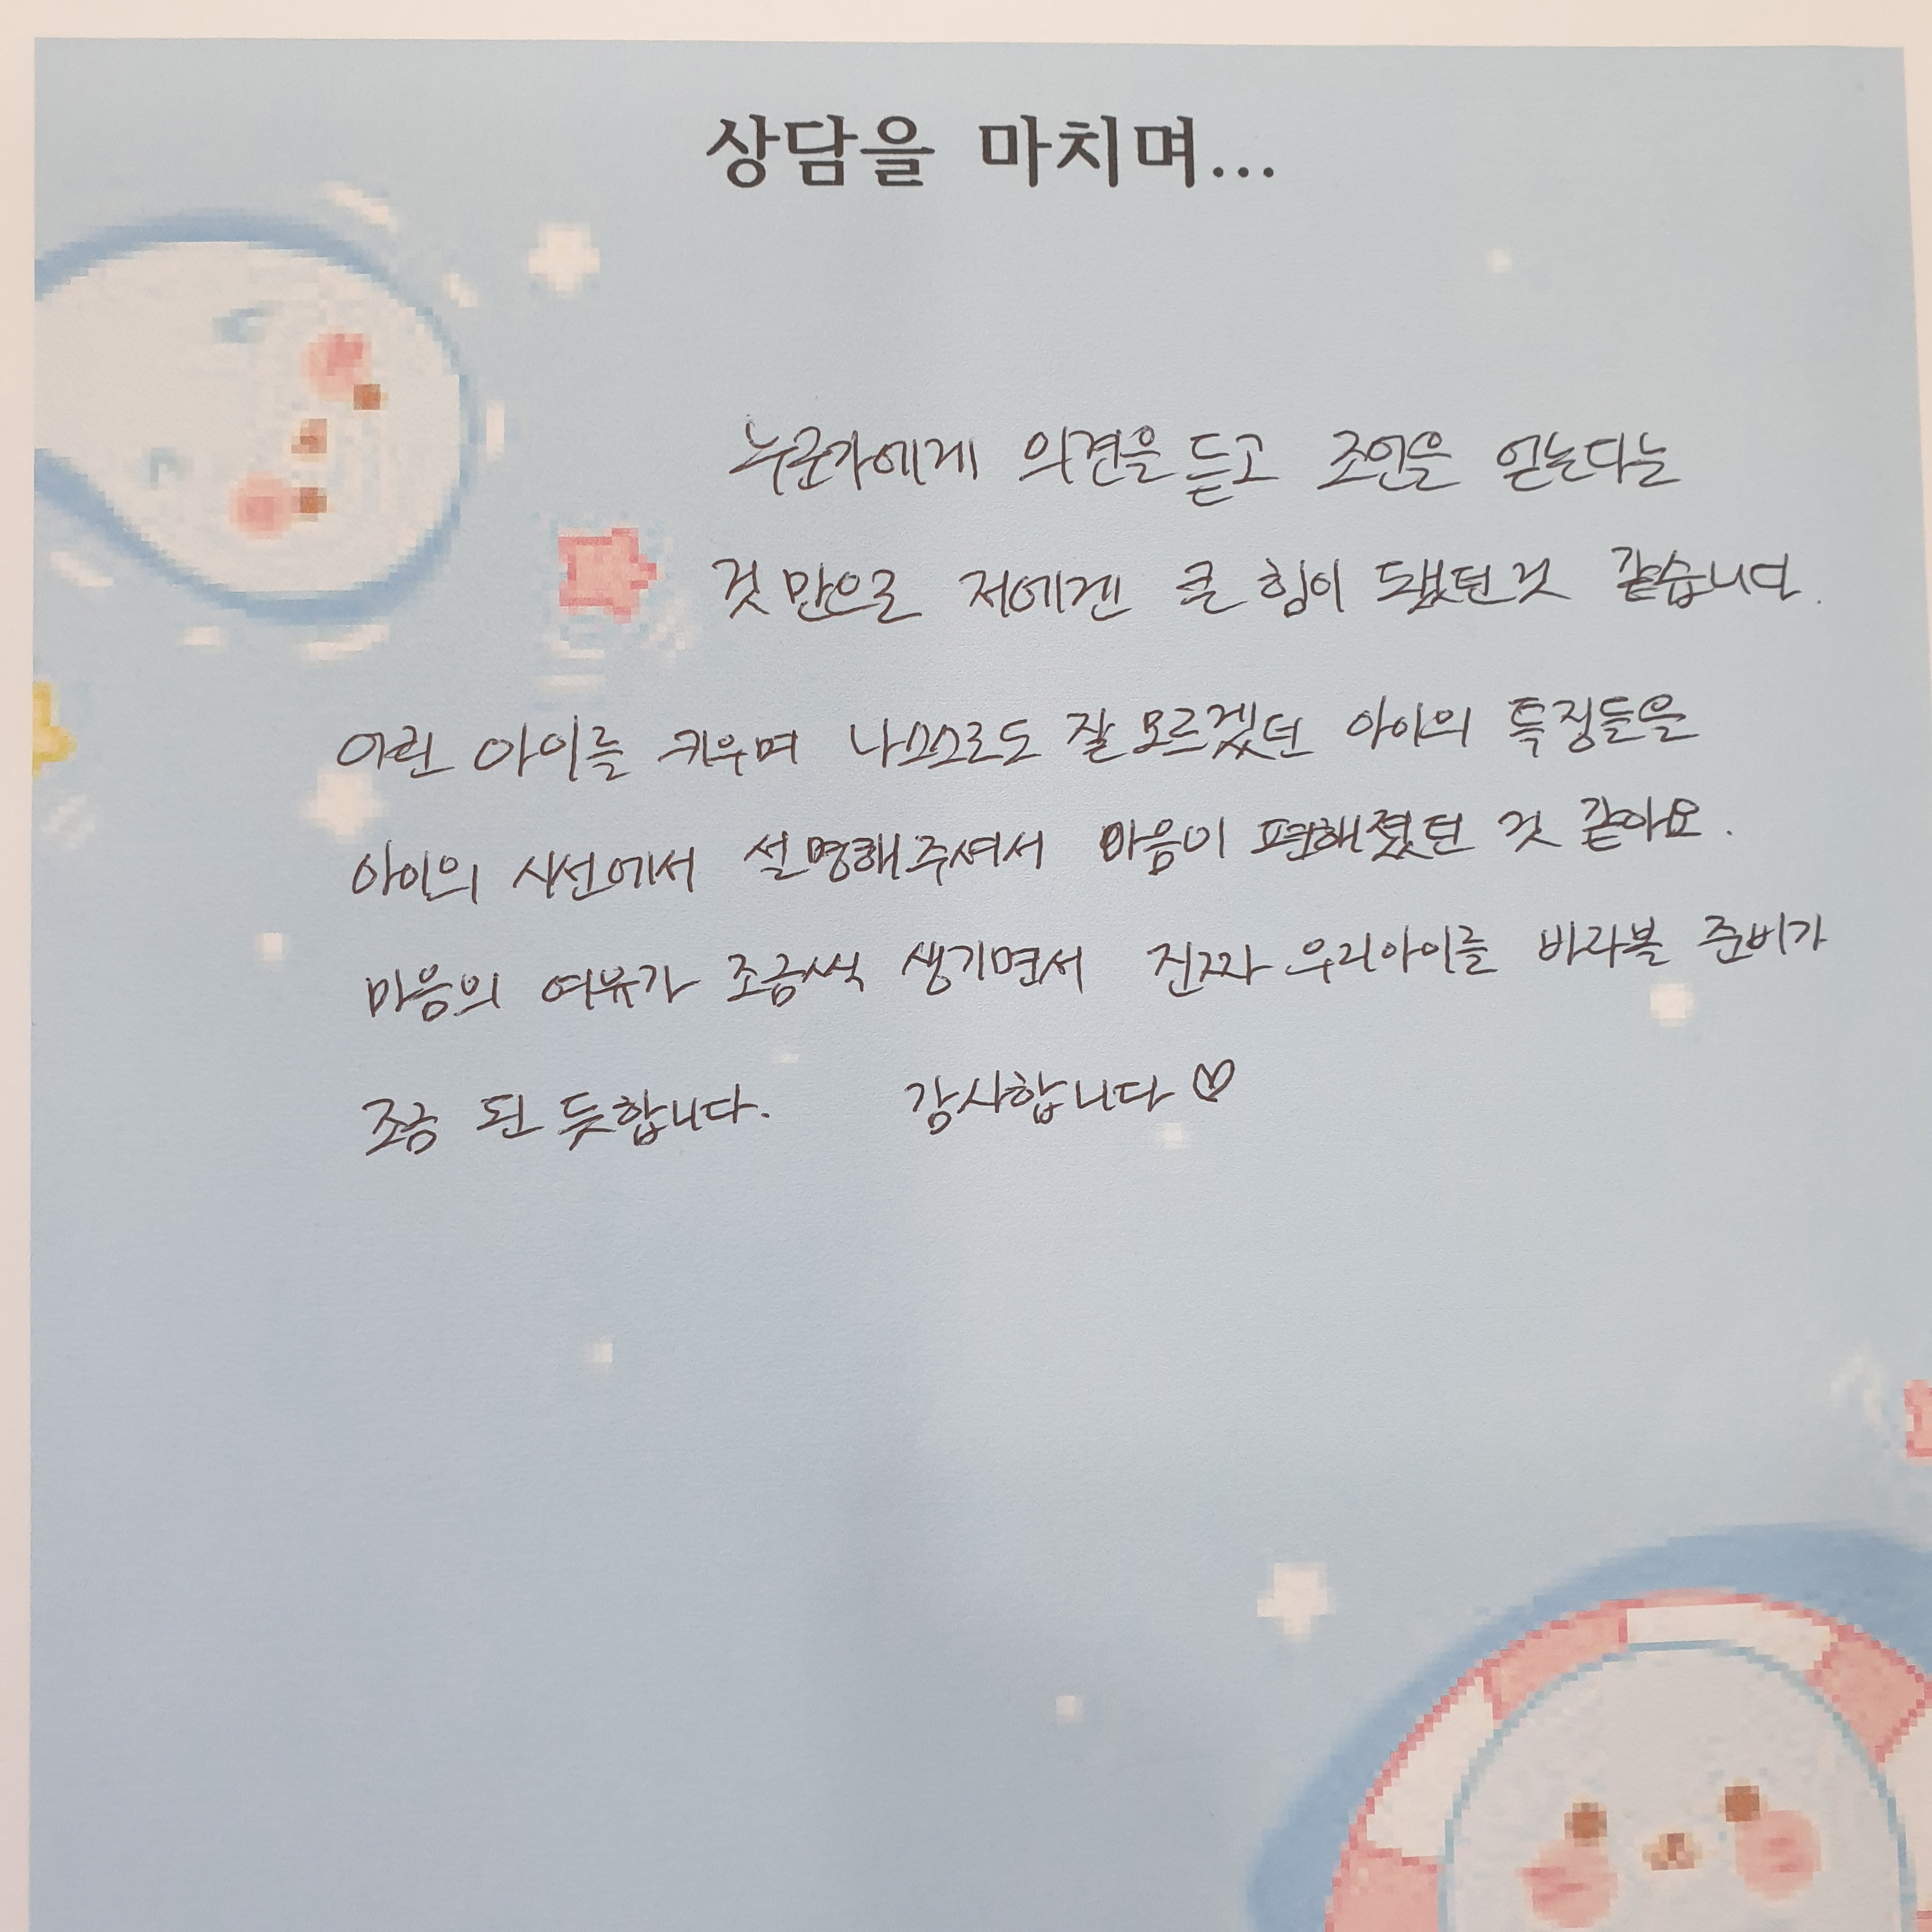 상담을 마치며...
누군가에게 의견을 듣고 조언을 얻는다는
것 만으로 저에겐 큰 힘이 됐던것 같습니다.
어린 아이를 키우며 나스스로도 잘 모르겠던 아이의 특징들을
아이의 시선에서 설명해주셔서 마음이 편해졌던 것 같아요.
마음의 여유가 조금씩 생기면서 진짜 우리아이를 바라볼 준비가
조금 된 듯합니다. 감사합니다 ♡